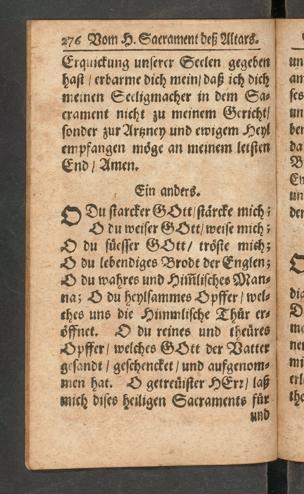 276 Vom H. Sacrament deß Altars.
Erquickung unserer Seelen gegeben
hast / erbarme dich mein / daß ich dich
meinen Seeligmacher in dem Sa-
crament nicht zu meinem Gericht /
sonder zur Artzney und ewigem Heyl
empfangen möge an meinem letsten
End / Amen.
Ein anders.
O Du starcker GOtt / stärcke mich;
O du weiser GOtt / weise mich;
O du süesser GOtt / tröste mich;
O du lebendiges Brodt der Englen;
O du wahres und Him̃lisches Man-
na; O du heylsammes Opffer / wel-
ches uns die Himmlische Thür er-
öffnet. O du reines und theüres
Opffer / welches GOtt der Vatter
gesandt / geschencket / und aufgenom-
men hat. O getreüister HErr / laß
mich dises heiligen Sacraments für
und